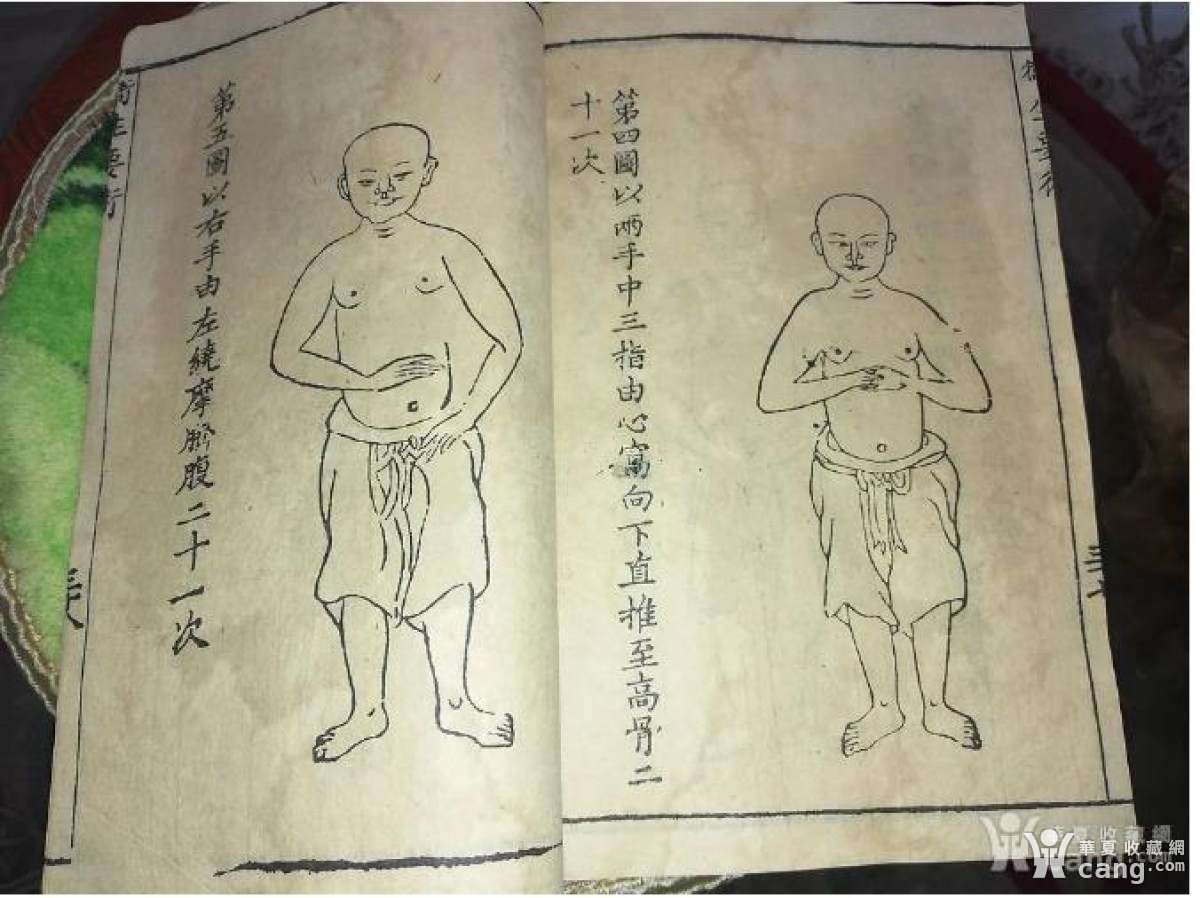 第四圖以兩手中三指由心窩向下直推至高骨二
十一次
第五圖以右手由左繞摩臍腹二十一次
衛生要術
華夏收藏網
cang.com